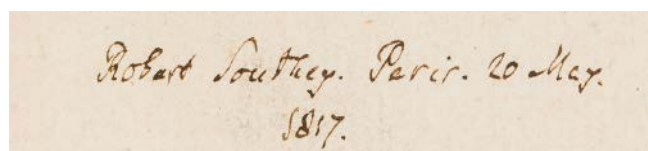 Robert Southey. Paris. 20 May.
1817.